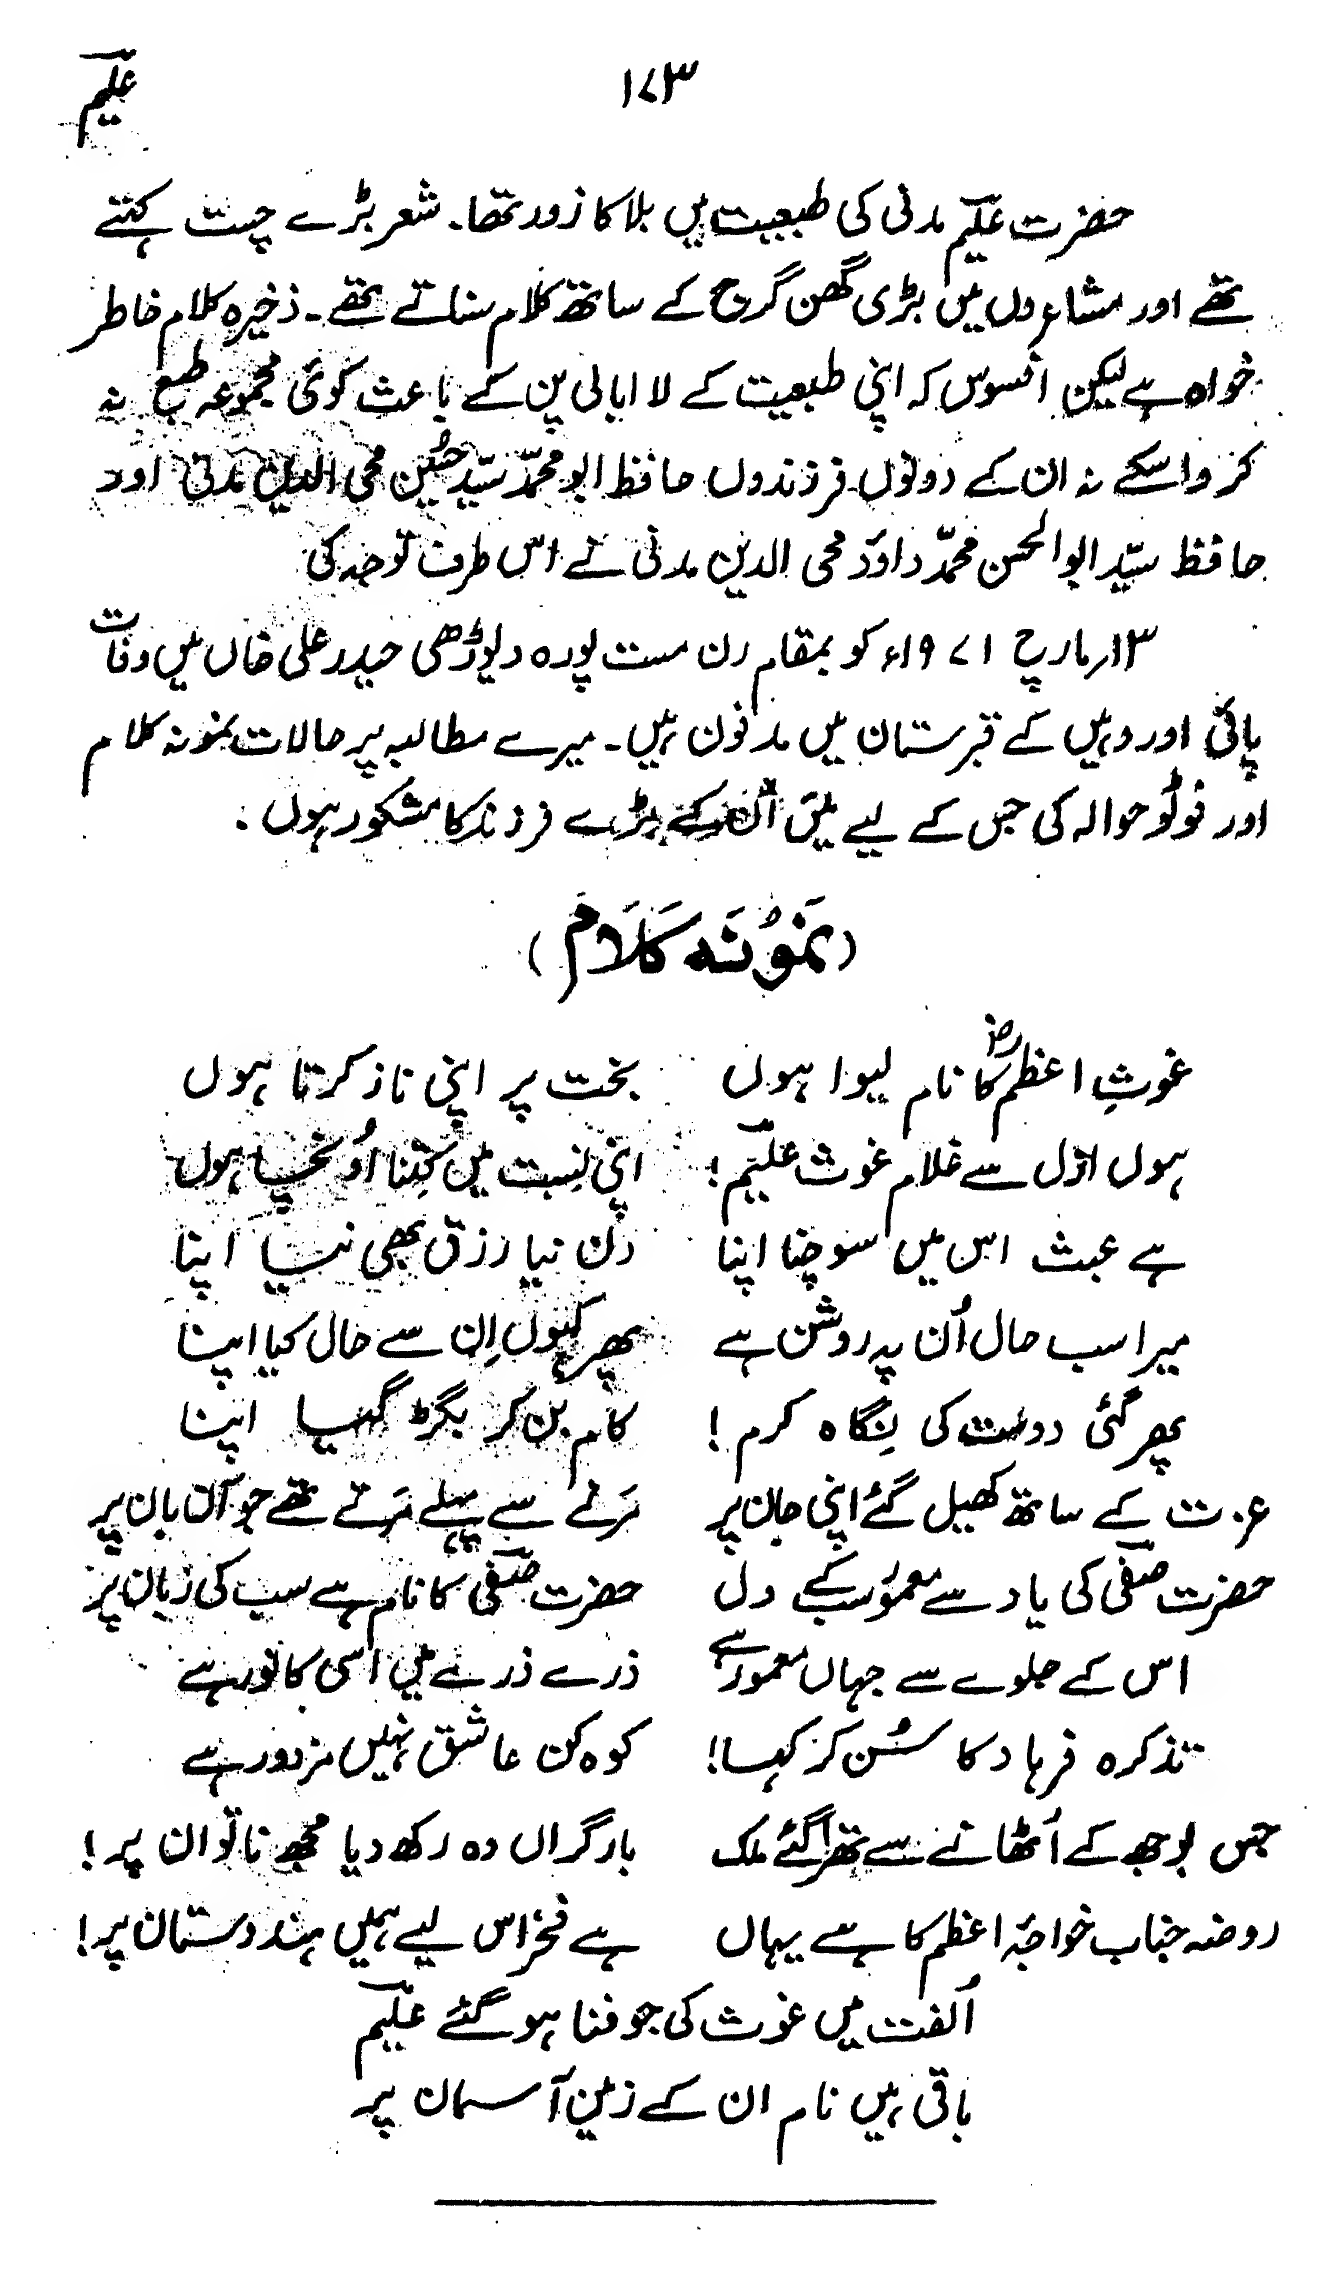 ۱۷۳
علیم
حضرت علیم مدنی کی طبیعت میں بلا کا زور تھا۔ شعر بڑے چست کہتے
تھے اور مشاعروں میں بڑی گھن گرج کے ساتھ کلام سناتے تھے۔ ذخیرہ کلام خاطر
خواہ ہے لیکن افسوس کہ اپنی طبعیت کے لا ابالی پن کے باعث کوئی مجموعہ طبع نہ
کروا سکے نہ ان کے دونوں فرزندوں حافظ ابو محمّد سیّد حسُین محی الدین مدنی اور
حافظ سیّد ابوالحسن محمّد داؤد محی الدین مدنی نے اس طرف توجہ کی
۱۳؍مارچ ۱۹۷۱ء کو بمقام رن مست پورہ دیوڑھی حیدر علی خاں میں وفات
پائی اور وہیں کے قبرستان میں مدفون ہیں۔ میرے مطالبہ پر حالات نمونہ کلام
اور فوٹو حوالہ کی جس کے لیے میں اُن کے بڑے فرزند کا مشکور ہوں۔
(نَموُنَہ کَلَام)
غوثِ اعظمؓ کا نام لیوا ہوں بخت پر اپنی ناز کرتا ہوں
ہوں ازل سے غلام غوث علیم! اپنی نِسبت میں کِتنا اُونچا ہوں
ہے عبث اس میں سوچنا اپنا دن نیا رزق بھی نیا اپنا
میرا سب حال اُن پہ روشن ہے پھر کہوں اِن سے حال کیا اپنا
پھر گئی دوست کی نِگاہ کرم! کام بن کر بگڑ گیا اپنا
عزت کے ساتھ کھیل گئے اپنی جان پر مَرنے سے پہلے مَرتے تھے جو آن بان پر
حضرت صفی کی یاد سے معموُر سب کے دل حضرت صفی کا نام ہے سب کی زبان پر
اس کے جلوے سے جہاں معمور ہے ذرے ذرے میں اسی کا نور ہے
تذکرہ فرہاد کا سُن کر کہا! کوہ کن عاشق نہیں مزدور ہے
جس بوجھ کے اُٹھانے سے تھرا گئے ملک بار گراں وہ رکھ دیا مجھ ناتواں پر!
روضہ جناب خواجۂ اعظم کا ہے یہاں ہے فخر اس لیے ہمیں ہندوستان پر!
اُلفت میں غوث کی جو فنا ہو گئے علیم
باقی ہیں نام ان کے زمین آسمان پر